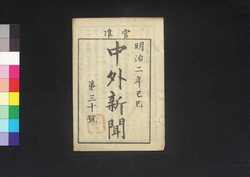 官准
明治二年己巳
中外新聞
第三十號